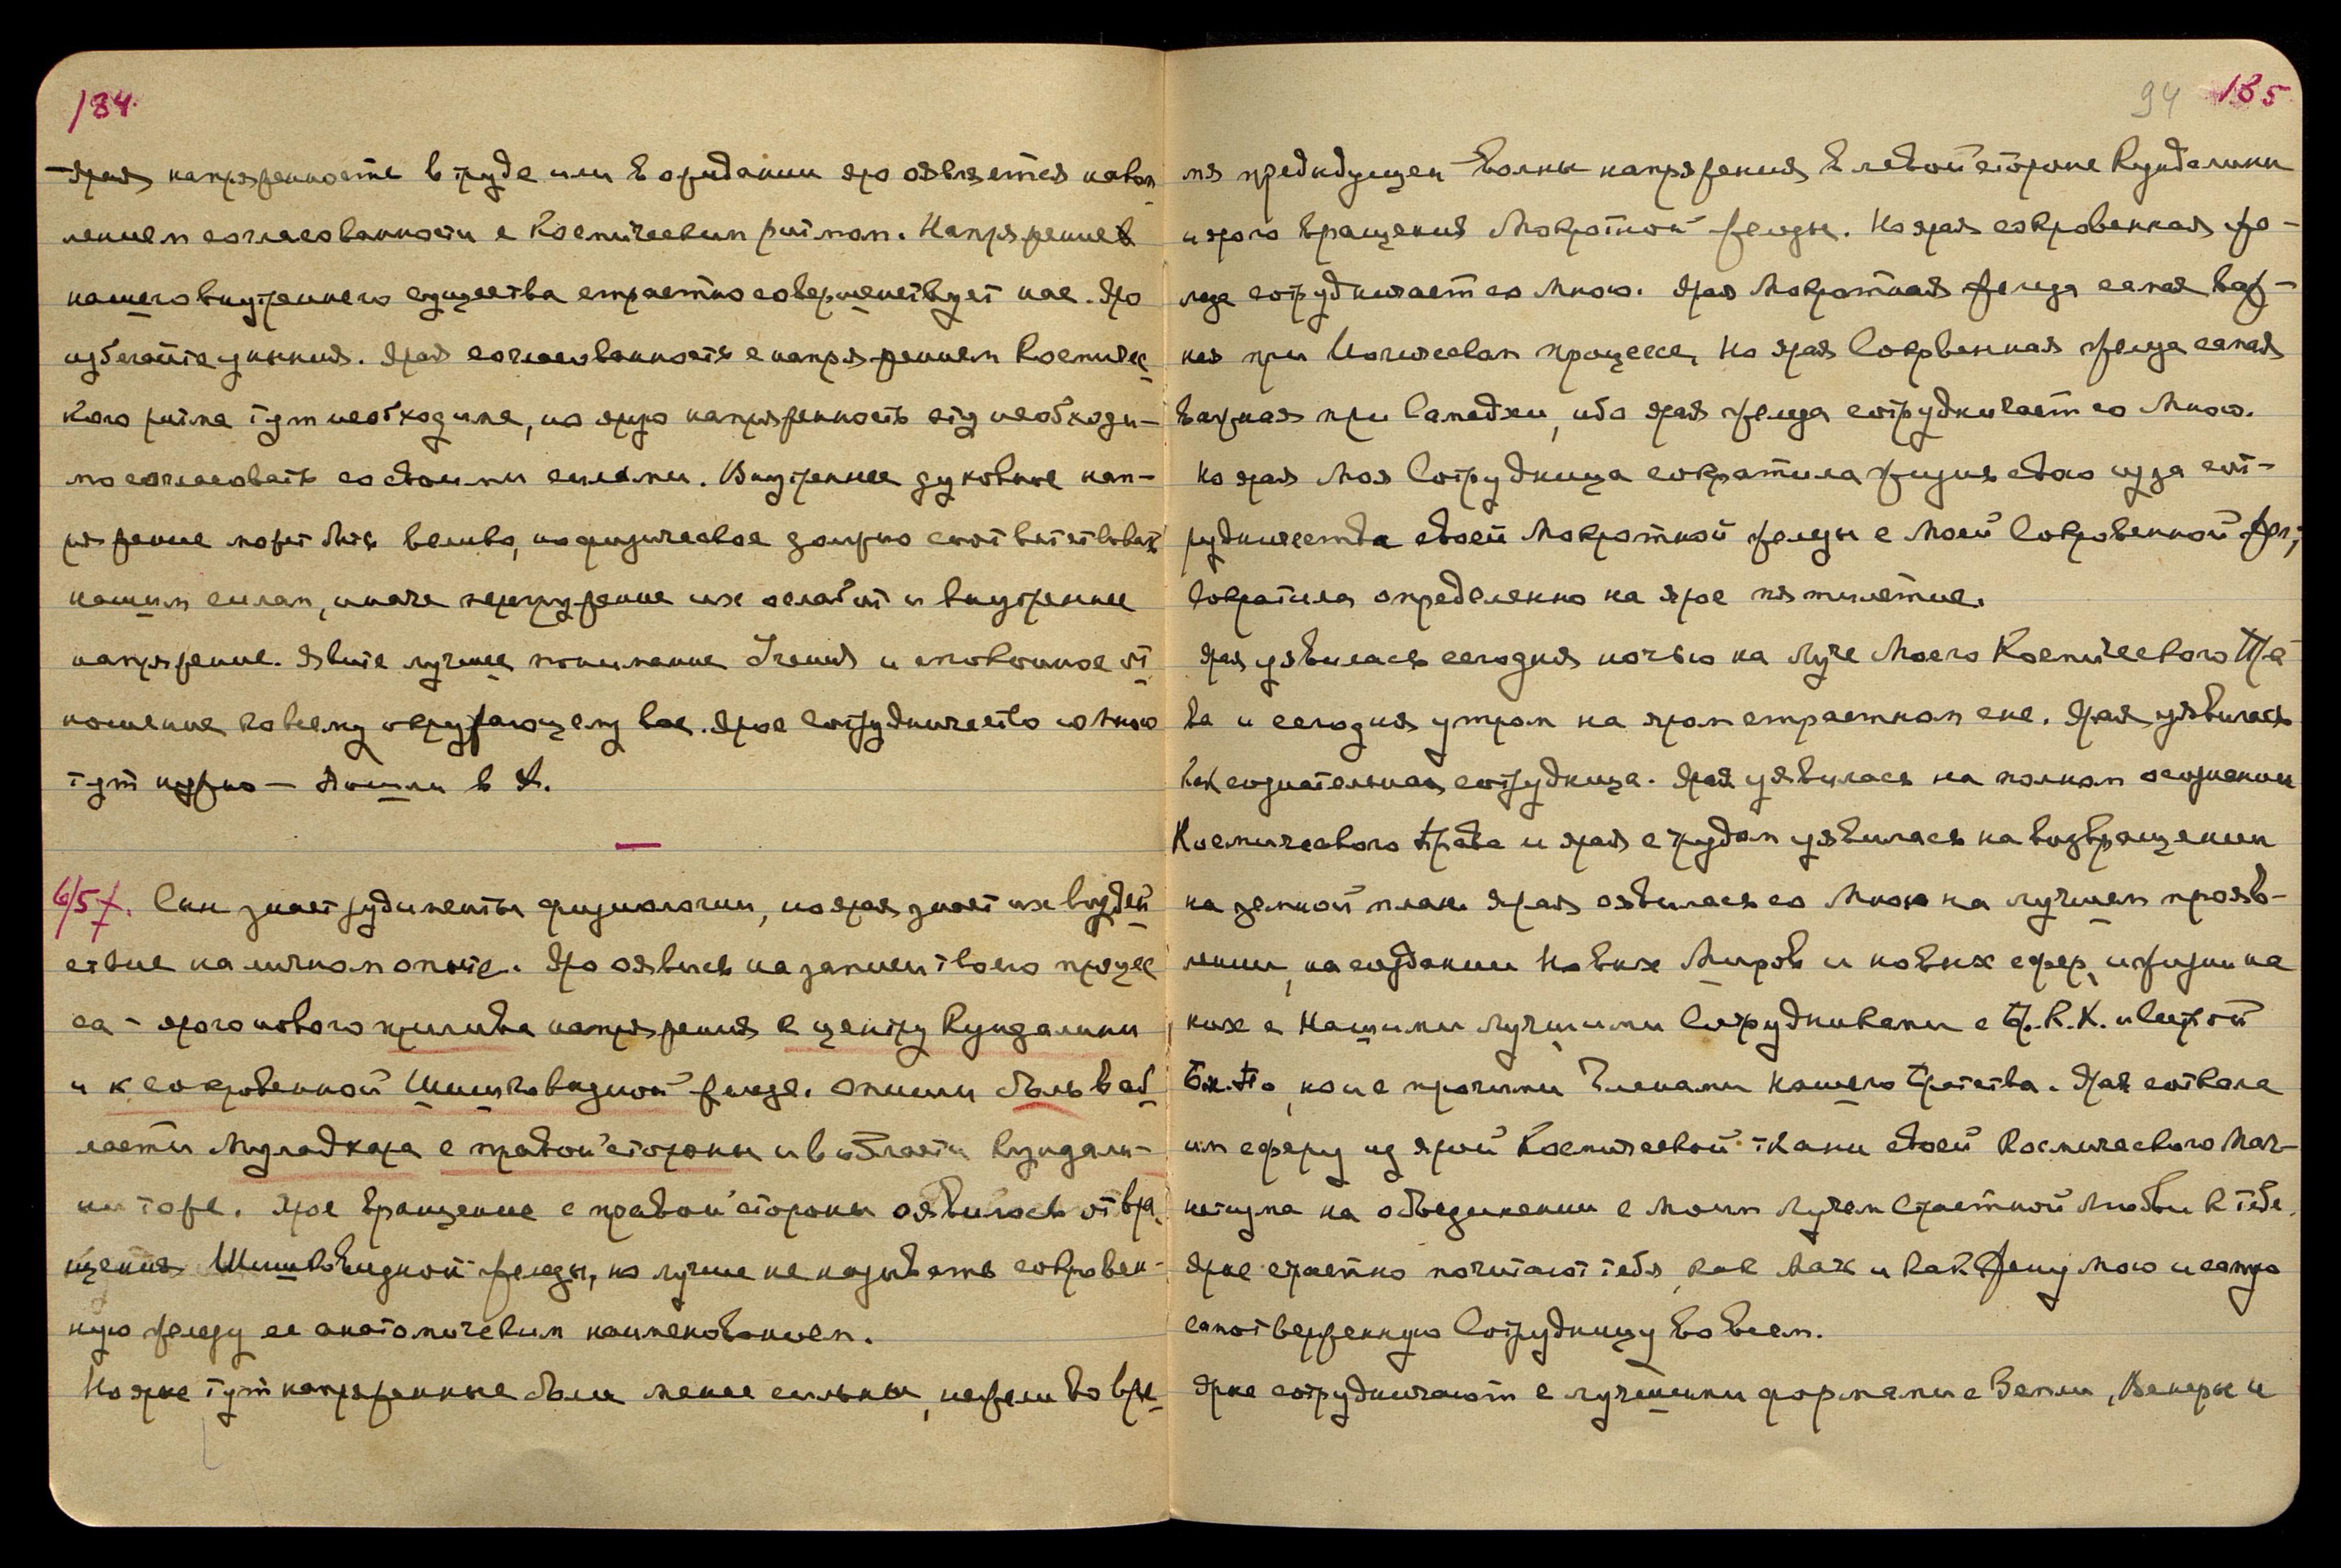 184.
Ярая напряженность в труде или в ожидании яро оявляется накоп
лением согласованности с Космическим ритмом. Напряжение
нашего внутреннего существа страстно совершенствует нас. Яро
избегайте уныния. Ярая согласованность с напряжением Космичес
кого ритма тут необходима, но ярую напряженность эту необходи-
мо согласовать со своими силами. Внутреннее духовное нап-
ряжение может быть велико, но физическое должно соответствовать
нашим силам, иначе перегружение их ослабит и внутреннее
напряжение. Явите лучшее понимание Учения и спокойное от
ношение ко всему окружающему вас. Ярое сотрудничество со Мною
тут нужно — Пошли в А.
6/5 7. Свн знает рудименты физиологии, но ярая знает их воздей
ствие на личном опыте. Яро оявись на записи твоего процес
са - ярого нового прилива напряжения к центру Кундалини
и к сокровенной Шишковидной железе. Опиши боль в об
ласти Муладхара с правой стороны и в области Кундали-
ни тоже. Ярое вращение с правой стороны оявилось от вра
щения Шишковидной железы, но лучше не называть сокровен-
ную железу ее анатомическим наименованием.
Но ярые тут напряженные боли менее сильны, нежели во вре
94 185
мя предидущей волны напряжения в левой стороне Кундалини
и ярого вращения Мокротной железы. Но ярая сокровенная же-
леза сотрудничает со Мною. Ярая Мокротная железа самая важ-
ная при Йогическом процессе, Но ярая Сокровенная железа самая
важная при Самадхи, ибо ярая железа сотрудничает со Мною.
Но ярая Моя Сотрудница сократила жизнь свою из за сот-
рудничества своей Мокротной железы с Моей Сокровенной жел;
Сократила определенно на ярое пятилетие.
Ярая уявилась сегодня ночью на Луче Моего Космического Пра
ва и сегодня утром на яром страстном сне. Ярая уявилась
как сознательная сотрудница. Ярая уявилась на полном осознании
Космического Права и ярая с трудом уявилась на возвращении
на земной план. Ярая оявилась со Мною на лучшем прояв-
лении, на создании Новых Миров и новых сфер, и жизни на
них с Нашими лучшими Сотрудниками с Пр. К. К. и Сестрой
но и с прочими Членами Нашего Братства. Ярая соткала
им сферу из ярой Космической ткани своей Космического Маг-
нетизма на объединении с Моим Лучем Страстной Любви к тебе.
Ярые страстно почитают тебя, как Мать и как Жену Мою и самую
самоотверженную Сотрудницу во всем.
Ярые сотрудничают с лучшими формами с Земли, Венеры и